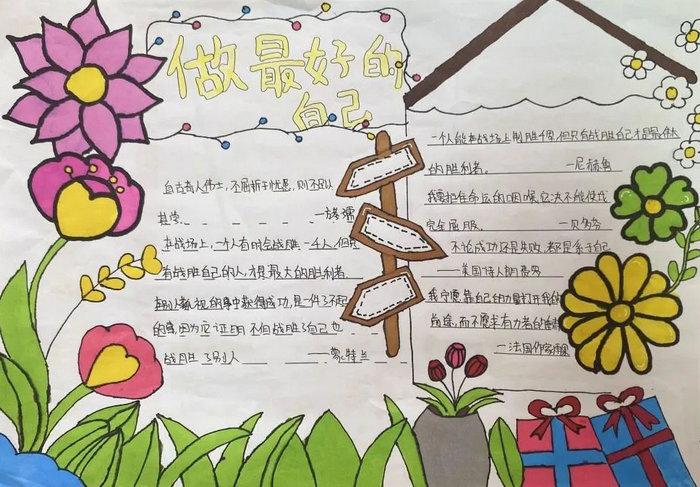 做最好的
自己
自古奇人伟士，不屈折于忧患，则不足以
其学。
在战场上，一个人有时会战胜一千人，但只
有战胜自己的人，才是最大的胜利者。
的事，因为它证明不但战胜了自己也
战胜了别人 ——蒙特兰
一个人能在战场上制胜
的胜利者。 ——尼赫鲁
我要扼住命运的咽喉，它决不能使我
完全屈服。 ——贝多芬
不论成功还是失败，都是系于自己
——美国诗人朗费罗
我宁愿靠自己的力量打开我的
前途，而不愿求有力者的
——法国作家雨果